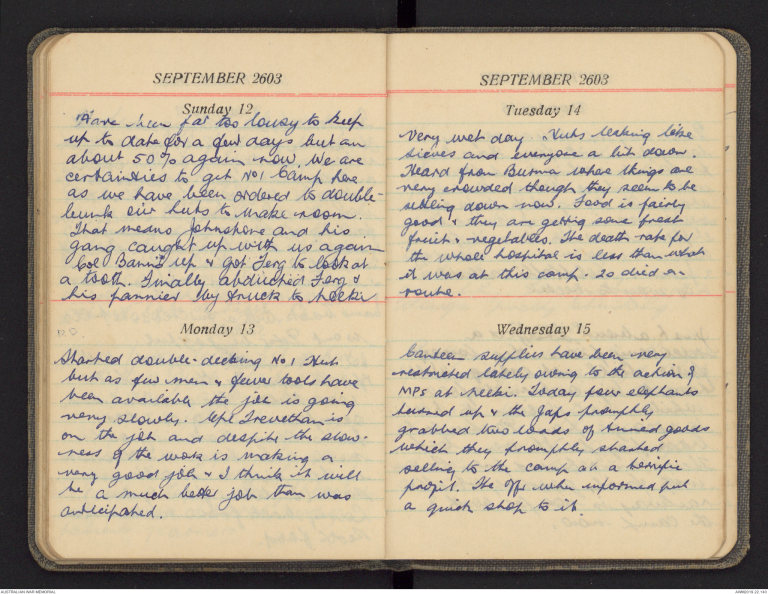 SEPTEMBER 2603
Sunday 12
Have been far too lousy to keep
up to date for a few days but am
about 50% again now. We are
certainties to get No 1 Camp here
as we have been ordered to double-
bunk our huts to make room.
That means Johnstone and his
gang caught up with us again
Col up & got Ferg to look at
a tooth. Finally abducted Ferg &
his pannier by truck to Neeki
Monday 13
Started double-decking No 1 Hut
but as few men & fewer tools have
been available the job is going
very slowly. Trevethan is
on the job and despite the slow-
ness of the work is making a
very good job & I think it will
be a much better job than was
anticipated.
SEPTEMBER 2603
Tuesday 14
Very wet day. Huts leaking like
sieves and everyone a bit down.
Heard from Burma where things are
very crowded though they seem to be
settling down now. Food is fairly
good & they are getting some fresh
fruit & vegetables. The death rate for
the whole hospital is less than what
it was at this camp. 20 died en
route.
Wednesday 15
Canteen supplies have been very
restricted lately owing to the action of
MPs at Neeki. Today four elephants
turned up & the Japs promptly
grabbed two loads of tinned goods
which they promptly started
selling to the camp at a terrific
profit. The Offr when informed put
a quick stop to it.
AUSTRALIAN WAR MEMORIAL